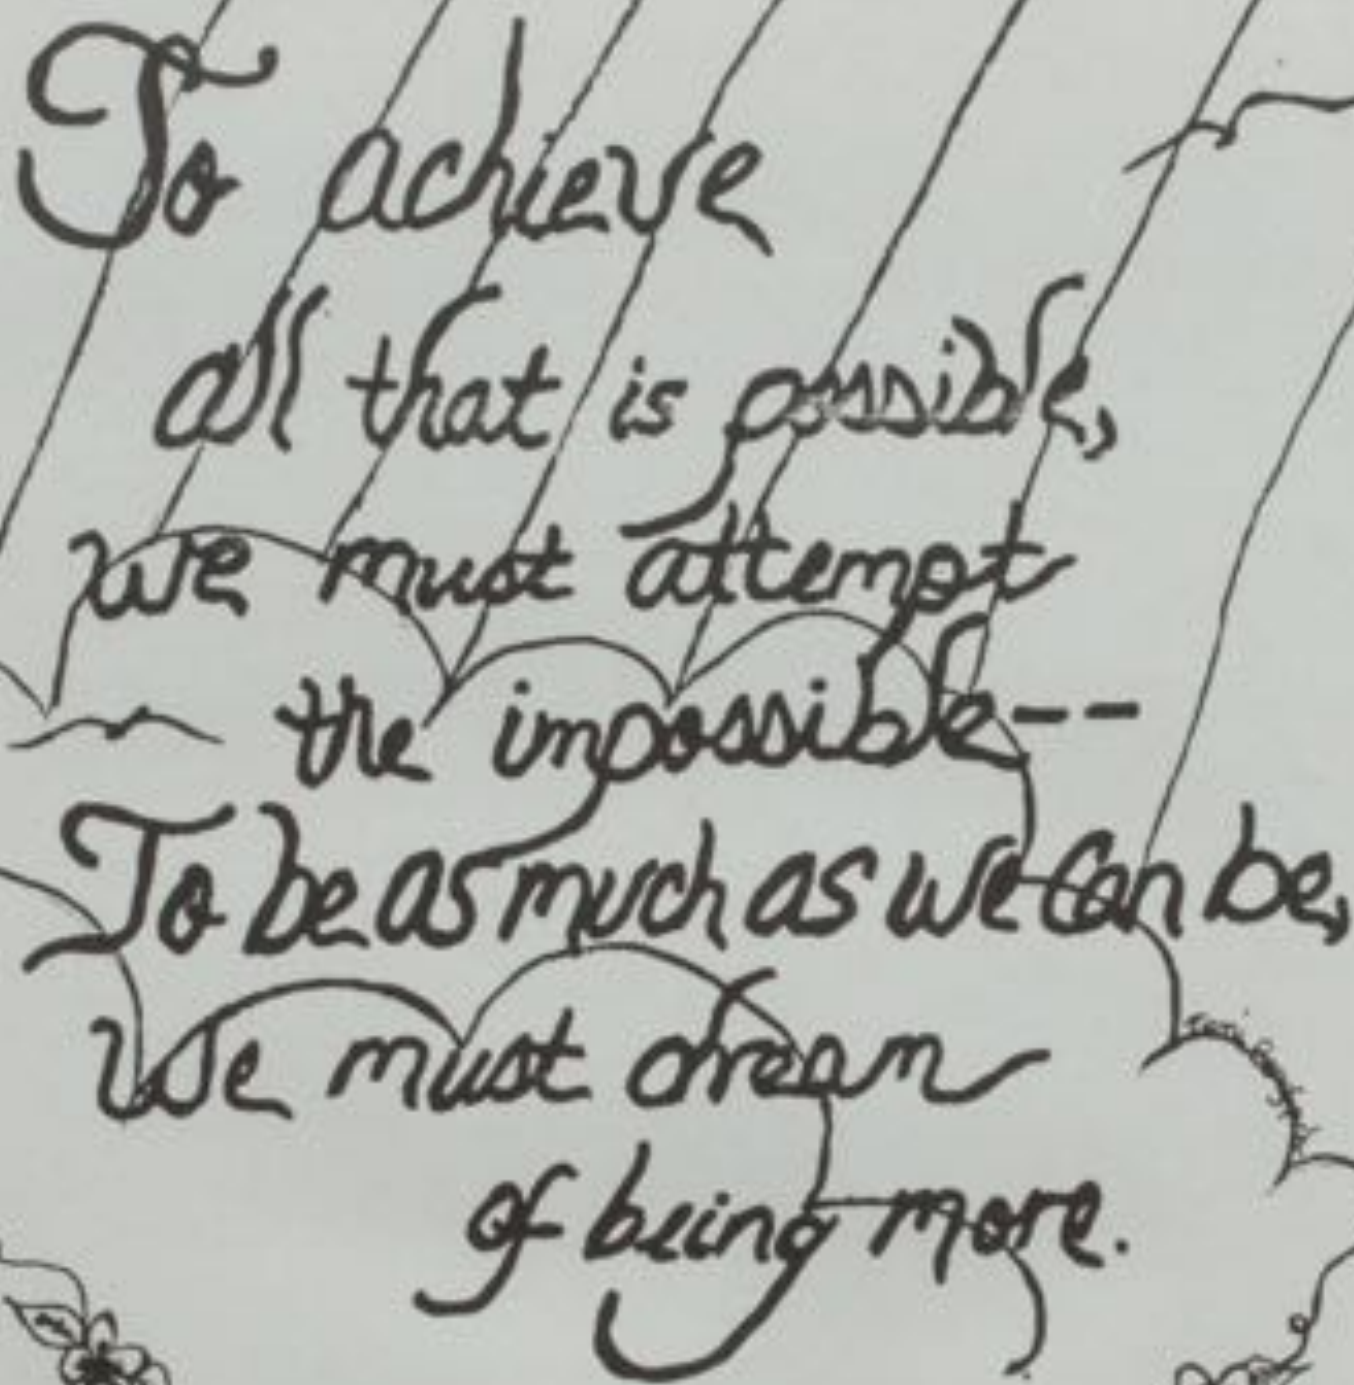 To achieve
all that is possible,
we must attempt
the impossible--
To be as much as we can be,
We must dream
of being more.